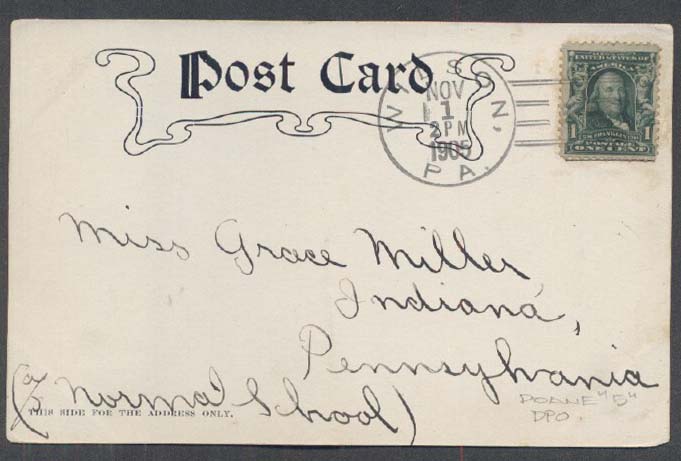 Post Card
NOV
1
2 PM
1905
PA.
UNITED STATES OF
AMERICA
1 1
POSTAGE
ONE CENT
Miss Grace Miller
Indiana,
Pennsylvania
(c/o Normal School)
THIS SIDE FOR THE ADDRESS ONLY.
DOANE "5"
DPO